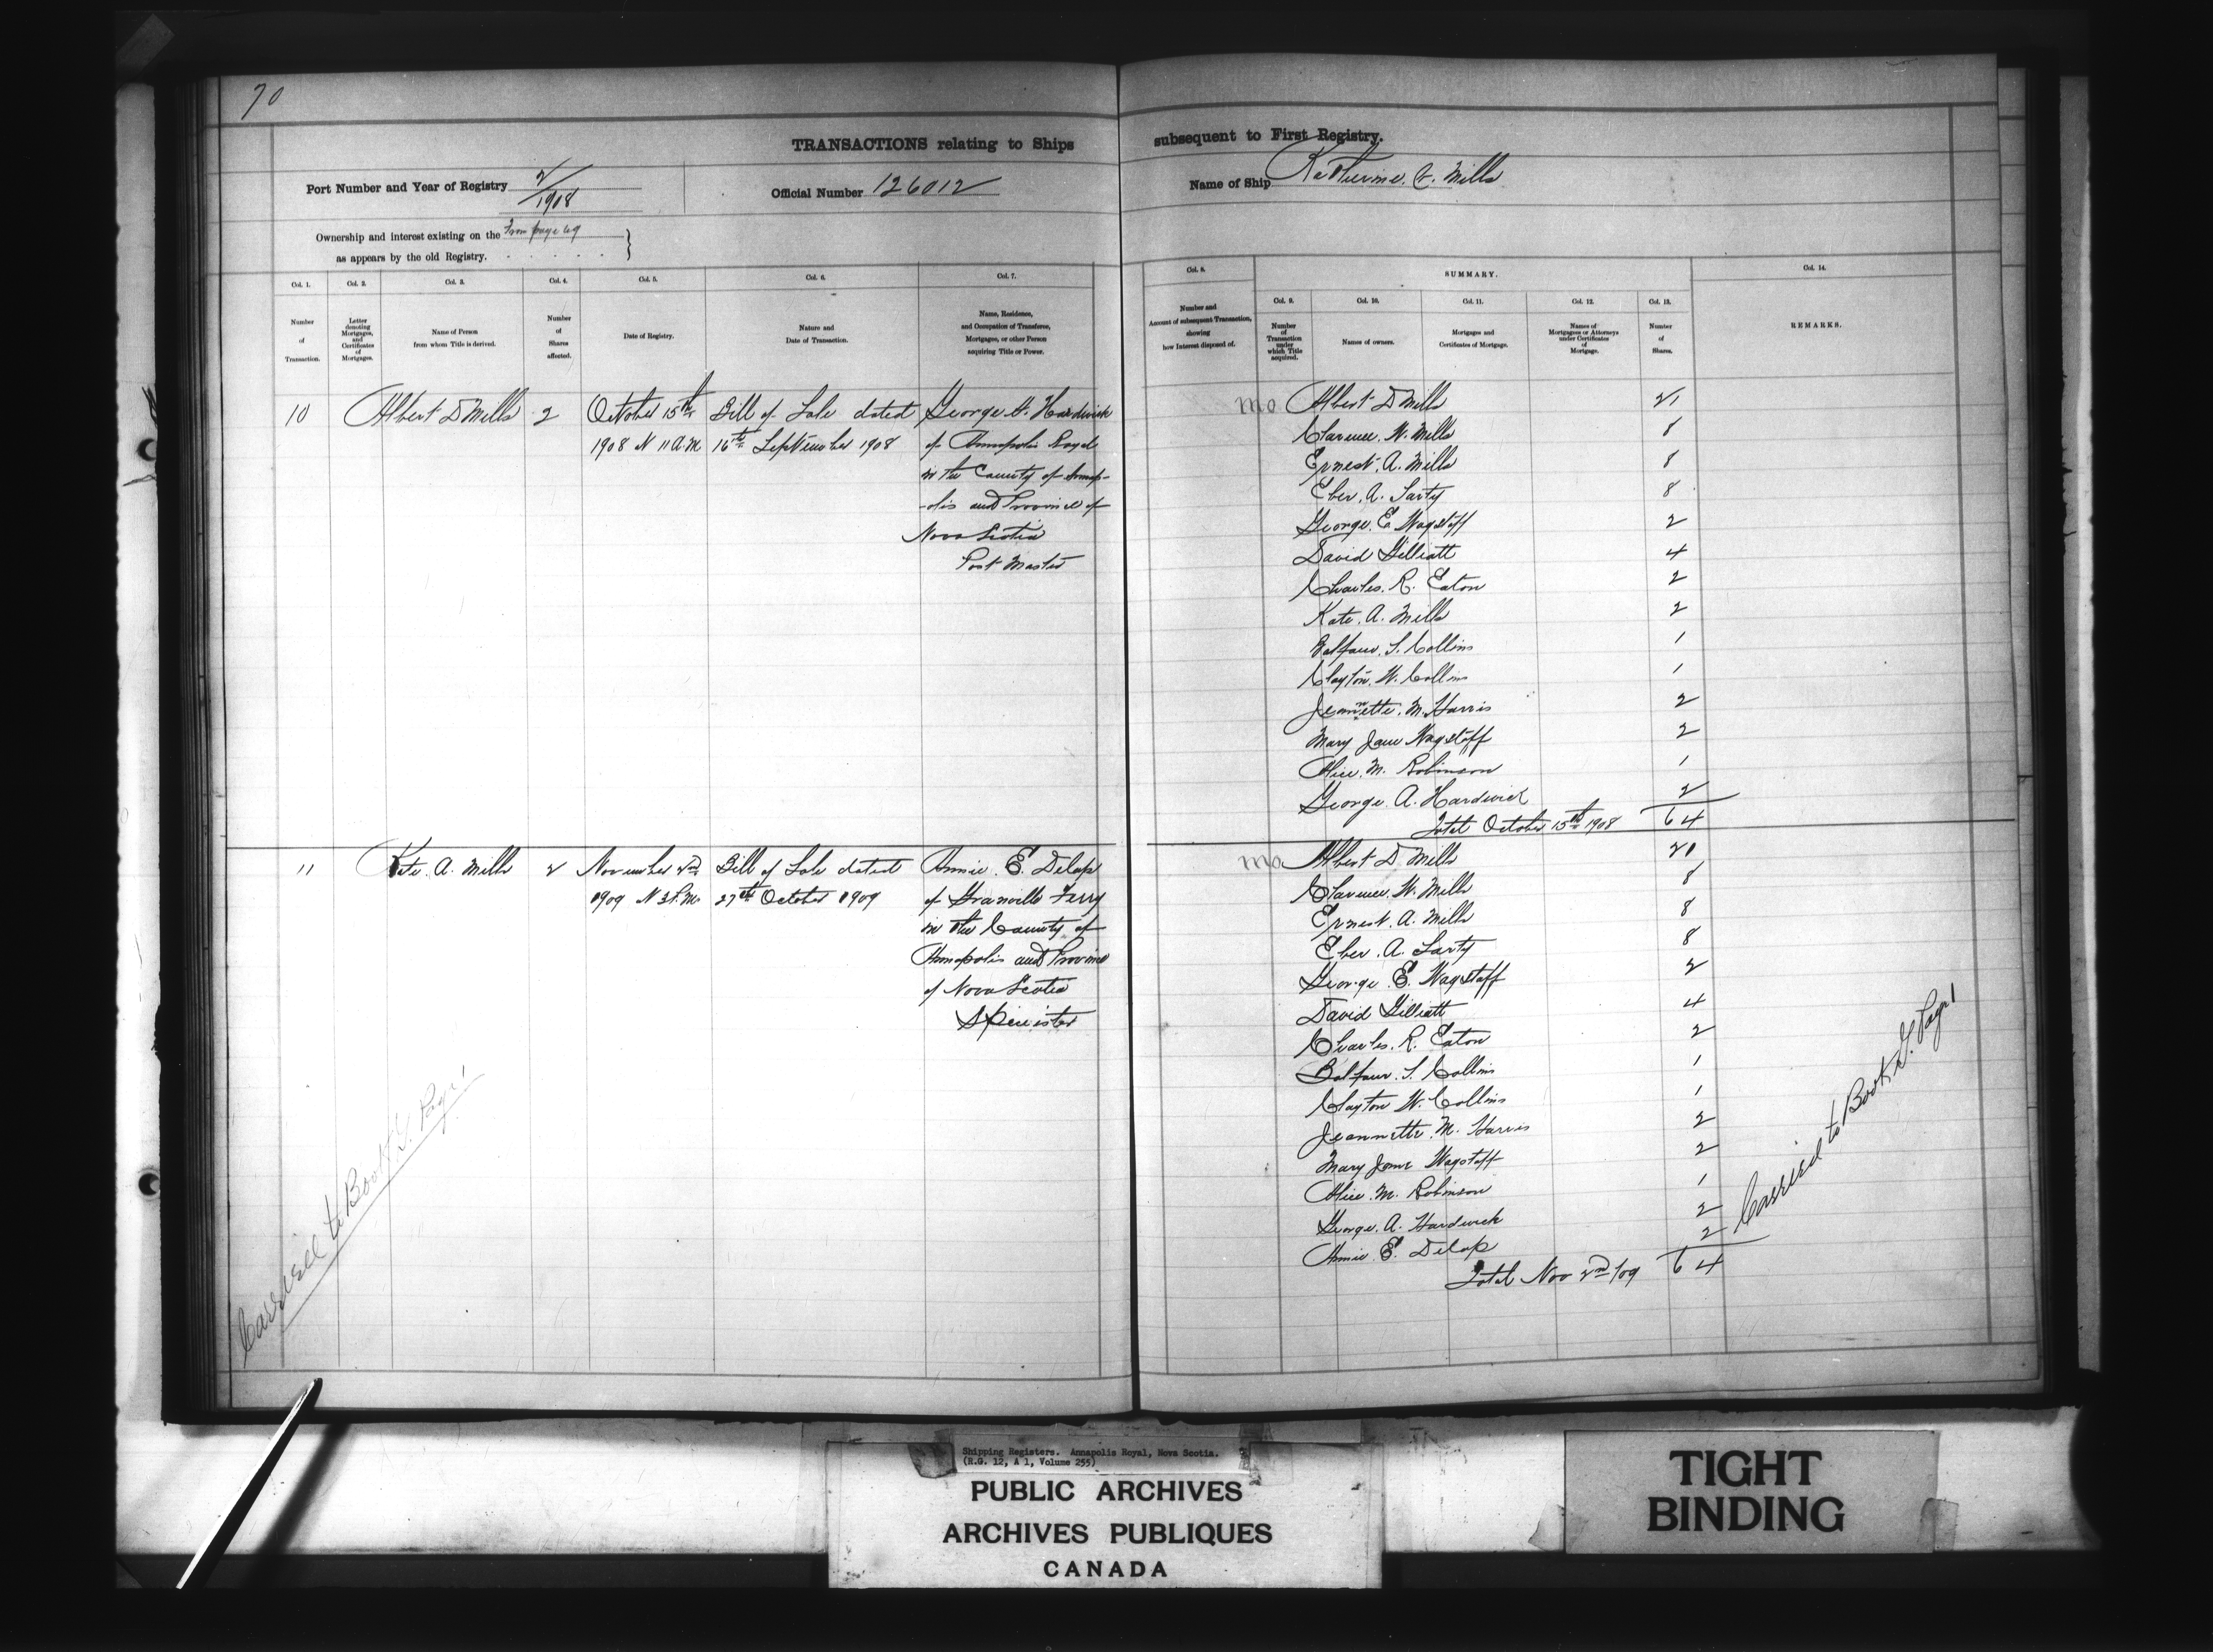 70
TRANSACTIONS relating to Ships subsequent to First Registry.
Port Number and Year of Registry 2/1908
Official Number 126012
Name of Ship Katherine. V. Mills
Ownership and interest existing on the From page 69
as appears by the old Registry.
Col. 1. Col. 2. Col. 3. Col. 4. Col. 5. Col. 6. Col. 7. Col. 8. SUMMARY. Col. 14.
Col. 9. Col. 10. Col. 11. Col. 12. Col. 13.
Number of Transaction.
Letter denoting Mortgages, and Certificates of Mortgages.
Name of Person from whom Title is derived.
Number of Shares affected.
Date of Registry.
Nature and Date of Transaction.
Name, Residence, and Occupation of Transferee, Mortgagee, or other Person acquiring Title or Power.
Number and Amount of subsequent Transaction, showing how Interest disposed of.
Number of Transaction under which Title acquired.
Names of owners.
Mortgages and Certificates of Mortgage.
Names of Mortgagees or Attorneys under Certificates of Mortgage.
Number of Shares.
REMARKS.
10 Albert D Mills 2 October 15th Bill of Sale dated George A. Hardwick
1908 N 11 A.M. 16th September 1908 of Annapolis Royal
in the County of Annap-
-olis and Province of
Nova Scotia
Post Master
mo Albert D Mills 21
Clarence. W. Mills 8
Ernest. A. Mills 8
Eber. A. Sarty 8
George. E Wagstaff 2
David Gilliatt 4
Charles. R. Eaton 2
Kate. A. Mills 2
Balfour. S. Collins 1
Clayton. W. Collins 1
Jeannette. M. Harris 2
Mary Jane Wagstaff 2
Alice. M. Robinson 1
George. A. Hardwick 2
Total October 15th 1908 64
11 Kate. A. Mills 2 November 2nd Bill of Sale dated Annie. E. Delap
1909 N 3 P.M. 27th October 1909 of Granville Ferry
in the County of
Annapolis and Province
of Nova Scotia
Spinister
mo Albert D. Mills 21
Clarence. W. Mills 8
Ernest. A. Mills 8
Eber. A. Sarty 8
George. E. Wagstaff 2
David Gilliatt 4
Charles. R. Eaton 2
Balfour. S. Collins 1
Clayton W. Collins 1
Jeannette. M. Harris 2
Mary Jane Wagstaff 2
Alice. M. Robinson 1
George. A. Hardwick 2
Annie. E. Delap 2
Total Nov 2nd /09 64
Carried to Book G. Page 1
Carried to Book G. Page 1
Shipping Registers. Annapolis Royal, Nova Scotia.
(R.G. 12, A 1, Volume 255)
PUBLIC ARCHIVES
ARCHIVES PUBLIQUES
CANADA
TIGHT
BINDING